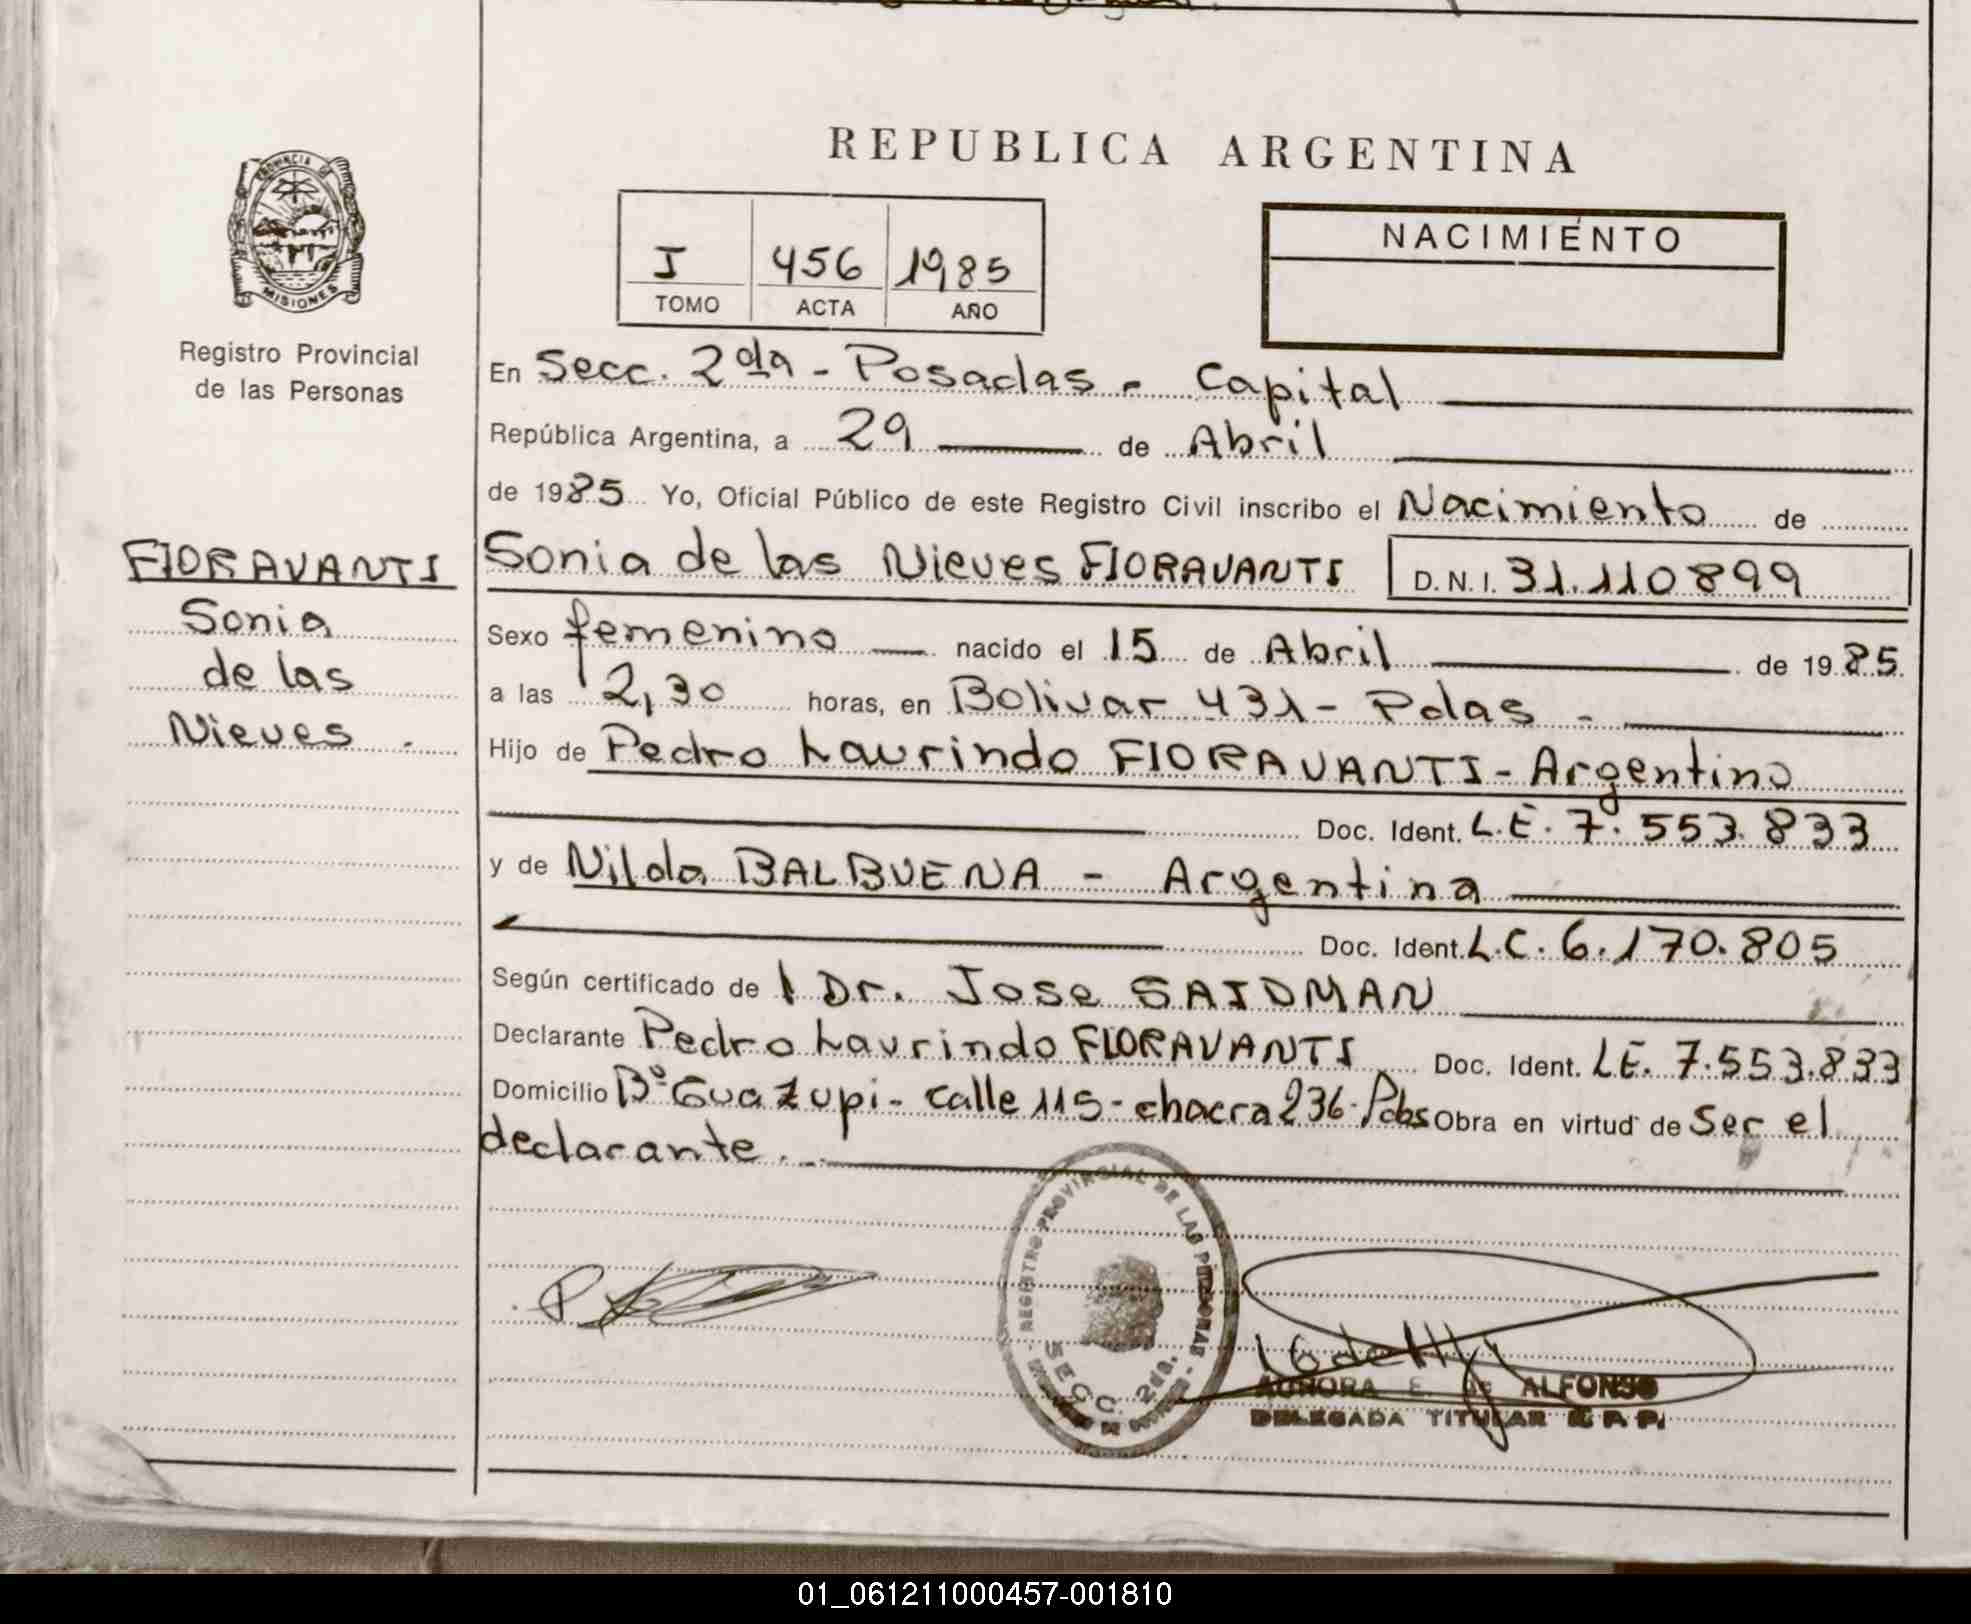 REPUBLICA ARGENTINA
PROVINCIA DE
MISIONES
Registro Provincial
de las Personas
I 456 1985
TOMO ACTA AÑO
NACIMIENTO
En Secc. 2da - Posadas - Capital
República Argentina, a 29 de Abril
de 1985 Yo, Oficial Público de este Registro Civil inscribo el Nacimiento de
Sonia de las Nieves FIORAVANTI D.N.I. 31.110899
FIORAVANTI
Sonia
de las
Nieves.
Sexo femenino nacido el 15 de Abril de 1985.
a las 2,30 horas, en Bolivar 431 - Pdas -
Hijo de Pedro Laurindo FIORAVANTI - Argentino
Doc. Ident. L.E. 7.553.833
y de Nilda BALBUENA - Argentina
Doc. Ident. L.C. 6.170.805
Según certificado de l Dr. Jose SAIDMAN
Declarante Pedro Laurindo FIORAVANTI Doc. Ident. LE. 7.553.833
Domicilio Bº Guazupi - calle 115 - chacra 236 - Pdas Obra en virtud de Ser el
declarante.
REGISTRO PROVINCIAL DE LAS PERSONAS
SECC. 2da.
AURORA E. de ALFONSO
DELEGADA TITULAR R.P.P.
01_061211000457-001810